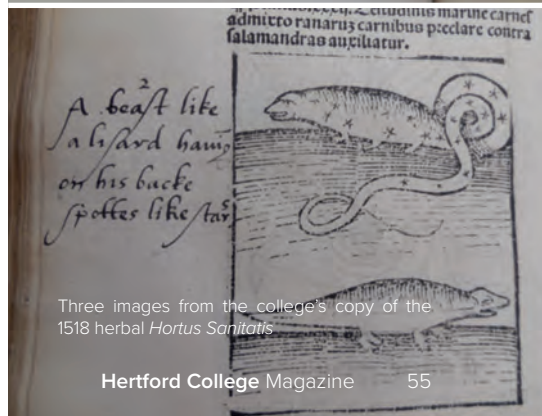 admixto ranarum carnibus preclare contra
salamandras auxiliatur.
2
A beast like
a lisard
on his backe
spottes like stars
Three images from the college's copy of the
1518 herbal Hortus Sanitatis
Hertford College Magazine 55